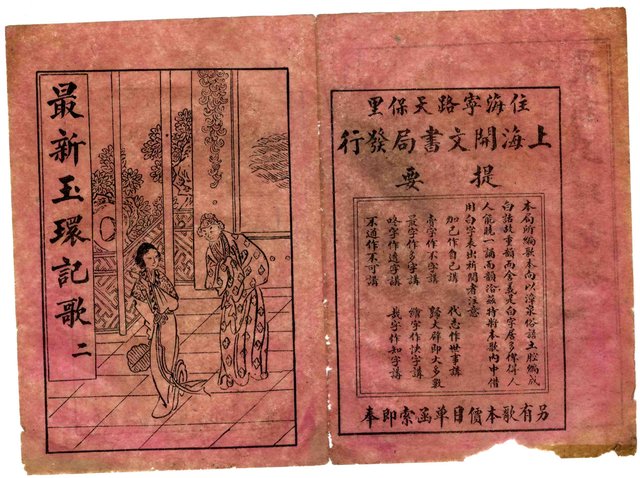 住海寧路天保里
上海開文書局發行
提要
本局所編歌本向以漳泉俗語土腔編成
白話故重韻而今義是白字居多俾得人
人能曉一誦而韻洽茲特新本歌內中借
用白字表出祈閱者注意
加己作自己講 代志作世事講
字作不字講 歸大辟即大多數
最字作多字講 續字作決字講
字作透字講 哉字作知字講
不通作不可講
另有歌本價目單函索即奉
最新玉環記歌 二